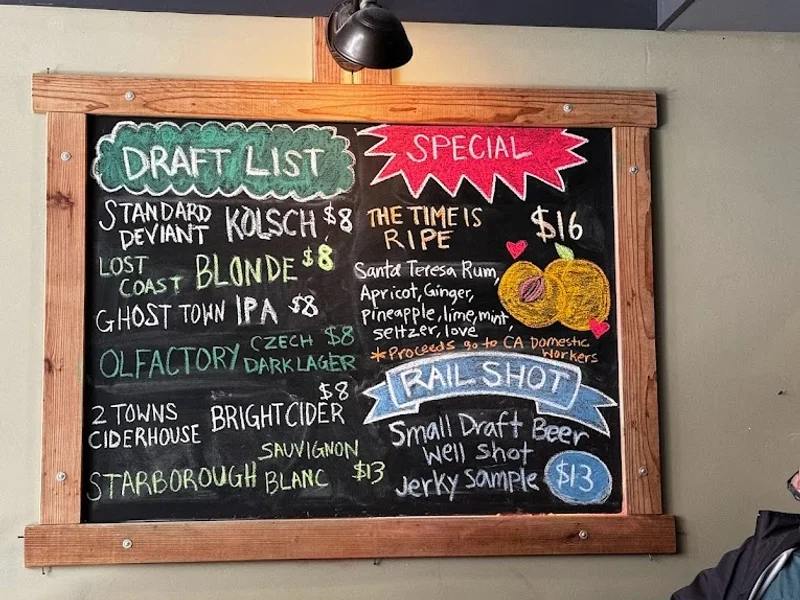 DRAFT LIST
STANDARD DEVIANT KÖLSCH $8
LOST COAST BLONDE $8
GHOST TOWN IPA $8
OLFACTORY CZECH DARK LAGER $8
2 TOWNS CIDERHOUSE BRIGHT CIDER $8
STARBOROUGH SAUVIGNON BLANC $13
SPECIAL
THE TIME IS RIPE $16
Santa Teresa Rum,
Apricot, Ginger,
pineapple, lime, mint,
seltzer, love
*Proceeds go to CA Domestic
Workers
RAIL SHOT
Small Draft Beer
Well Shot
Jerky Sample $13